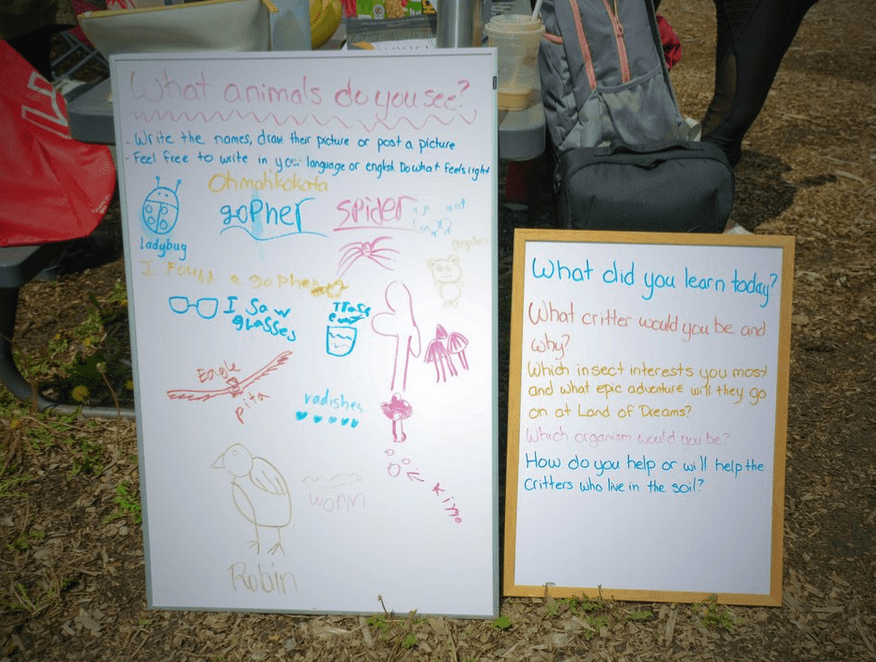 What animals do you see?
- Write the names, draw their picture or post a picture
- Feel free to write in your language or english Do what feels right
Ohmahkokata
gopher
spider
ant
Ladybug
gopher
I Found a gopher
I Saw
glasses
Eagle
pita
radishes
Kimo
worm
Robin
What did you learn today?
What critter would you be and
why?
Which insect interests you most
and what epic adventure will they go
on at Land of Dreams?
Which organism would you be?
How do you help or will help the
critters who live in the soil?